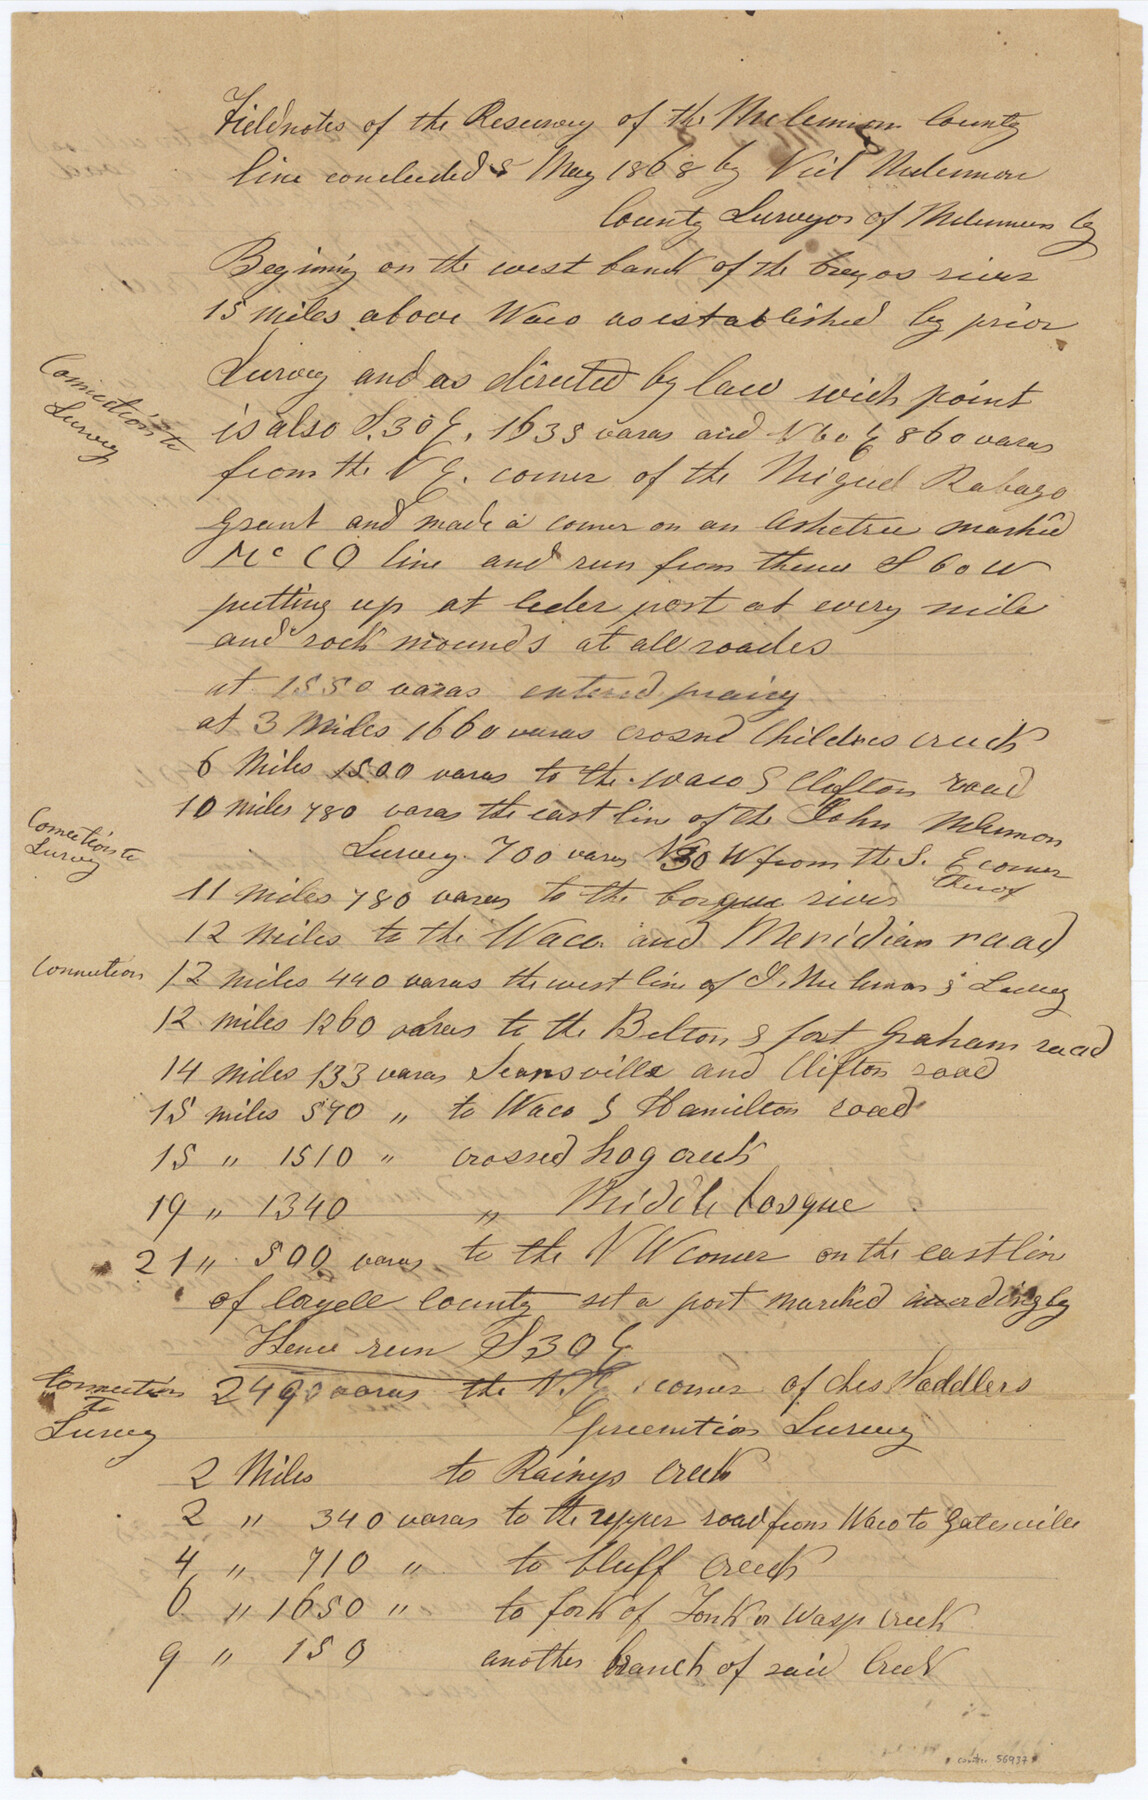 Fieldnotes of the Resurvey of the McLennan County
line concluded 8 May 1868 by Neil McLennan
County Surveyor of McLennan Cy
Begining on the west bank of the brazos river
15 miles above Waco as established by prior
Connection to
Survey
Survey and as directed by law wich point
is also S. 30 E. 1635 varas and N 60 E 860 varas
from the N E. corner of the Miguel Rabago
grant and made a corner on an Ashetree marked
Mc CO line and run from thence S 60 W
putting up at Ceder post at every mile
and rock mounds at all roades
at 1550 varas entered prairy
at 3 Miles 1660 varas crosned Childres creek
6 Miles 1500 varas to the Waco & Clifton road
10 miles 780 varas the east line of the John McLennon
Connection to
Survey
Survey. 700 varas N 30 W from the S. E corner
thereof
11 miles 780 varas to the bosque river
12 miles to the Waco and Meridian road
Connection 12 miles 440 varas the west line of J. McLennan's Survey
12 miles 1260 varas to the Belton & fort Graham road
14 miles 133 varas Jeansville and Clifton road
15 miles 590 " to Waco & Hamilton road
15 " 1510 " crossed hog creek
19 " 1340 " Middle bosque
21 " 500 varas to the N W corner on the east line
of Coryell County set a post marked accordingly
Hence run S 30 E
Connection
to
Survey
2490 varas the N. E. corner of Saddlers
preemtion Survey
2 Miles to Rainys Creek
2 " 340 varas to the upper road from Waco to Gatesville
4 " 710 " to bluff Creek
6 " 1650 " to fork of Tonk or Wasp creek
9 " 150 another branch of said Creek
contr. 56937